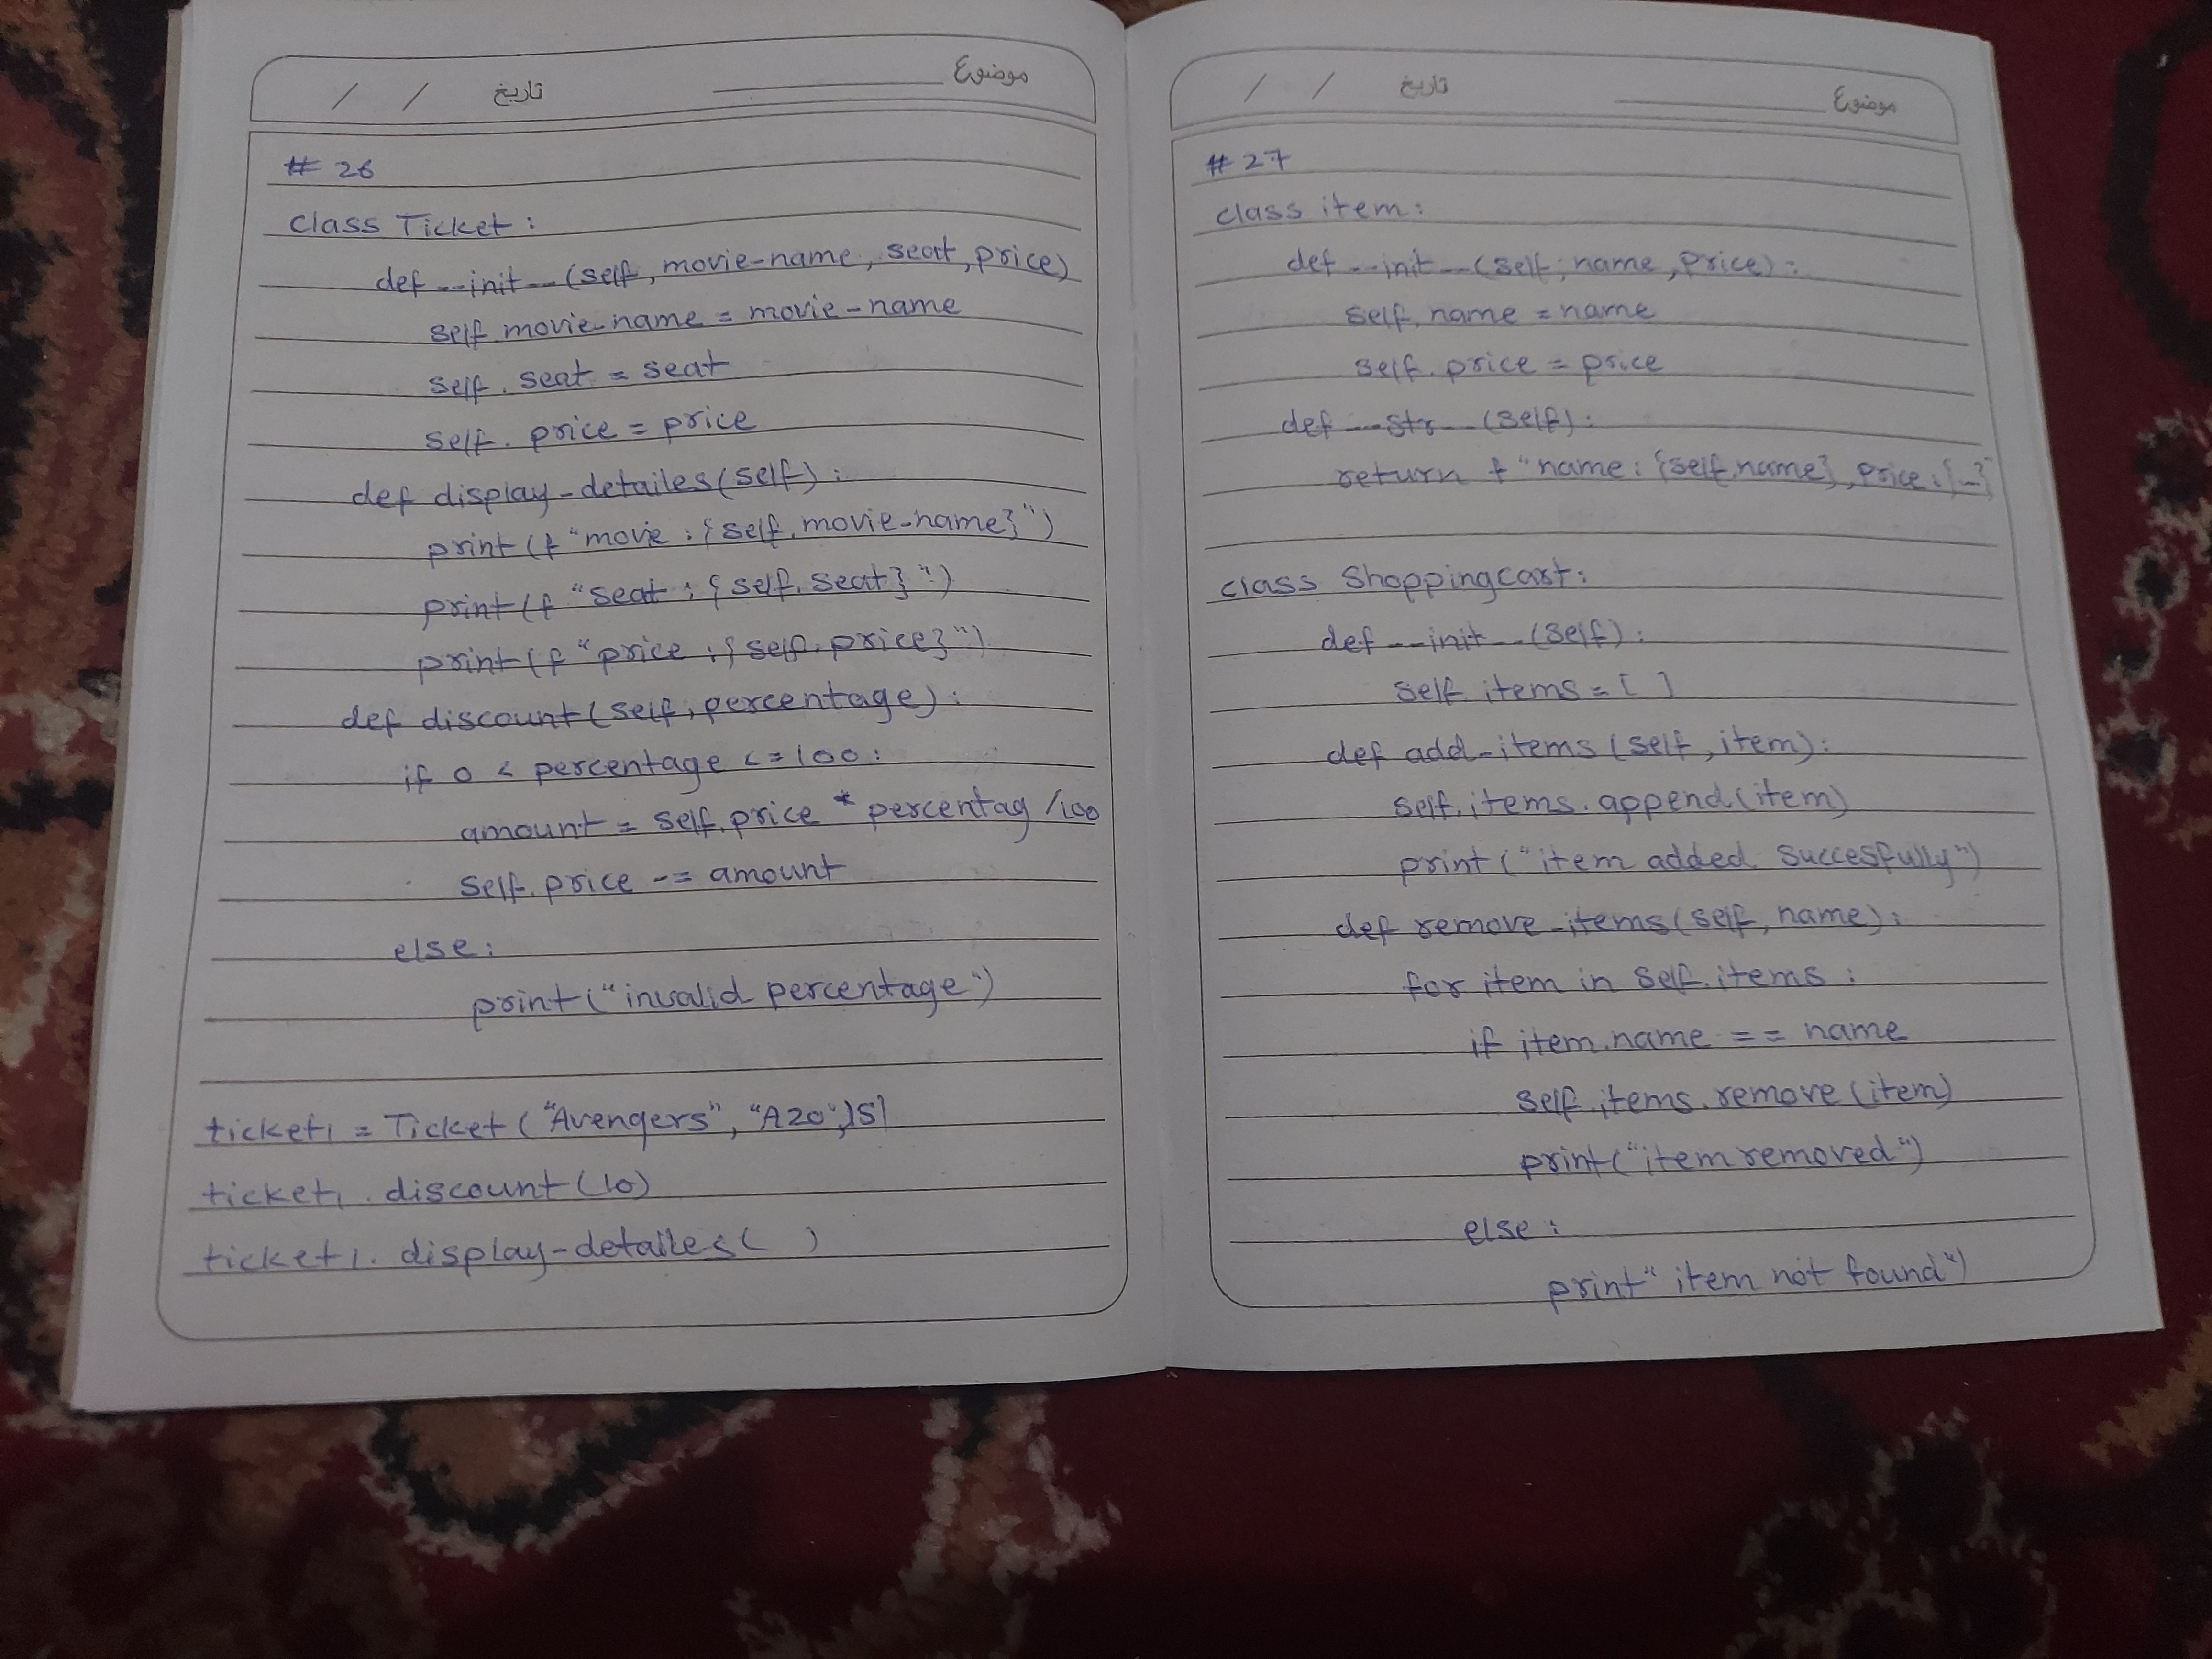 تاریخ / /
موضوع
# 26
class Ticket:
def __init__(self, movie_name, seat, price)
self.movie_name = movie_name
self.seat = seat
self.price = price
def display_detailes(self):
print(f"movie: {self.movie_name}")
print(f"seat: {self.seat}")
print(f"price: {self.price}")
def discount(self, percentage):
if 0 < percentage <= 100:
amount = self.price * percentag /100
self.price -= amount
else:
print("invalid percentage")
ticket1 = Ticket("Avengers", "A20",
ticket1.discount(10)
ticket1.display_detailes( )
تاریخ / /
موضوع
# 27
class item:
def __init__(self, name, price):
self.name = name
self.price = price
def __str__(self):
return f"name: {self.name}, price:{_}"
class Shoppingcart:
def __init__(self):
self items = [ ]
def add_items(self, item):
self.items.append(item)
print("item added succesfully")
def remove_items(self, name):
for item in self.items:
if item.name == name
self.items.remove(item)
print("item removed")
else:
print"item not found")